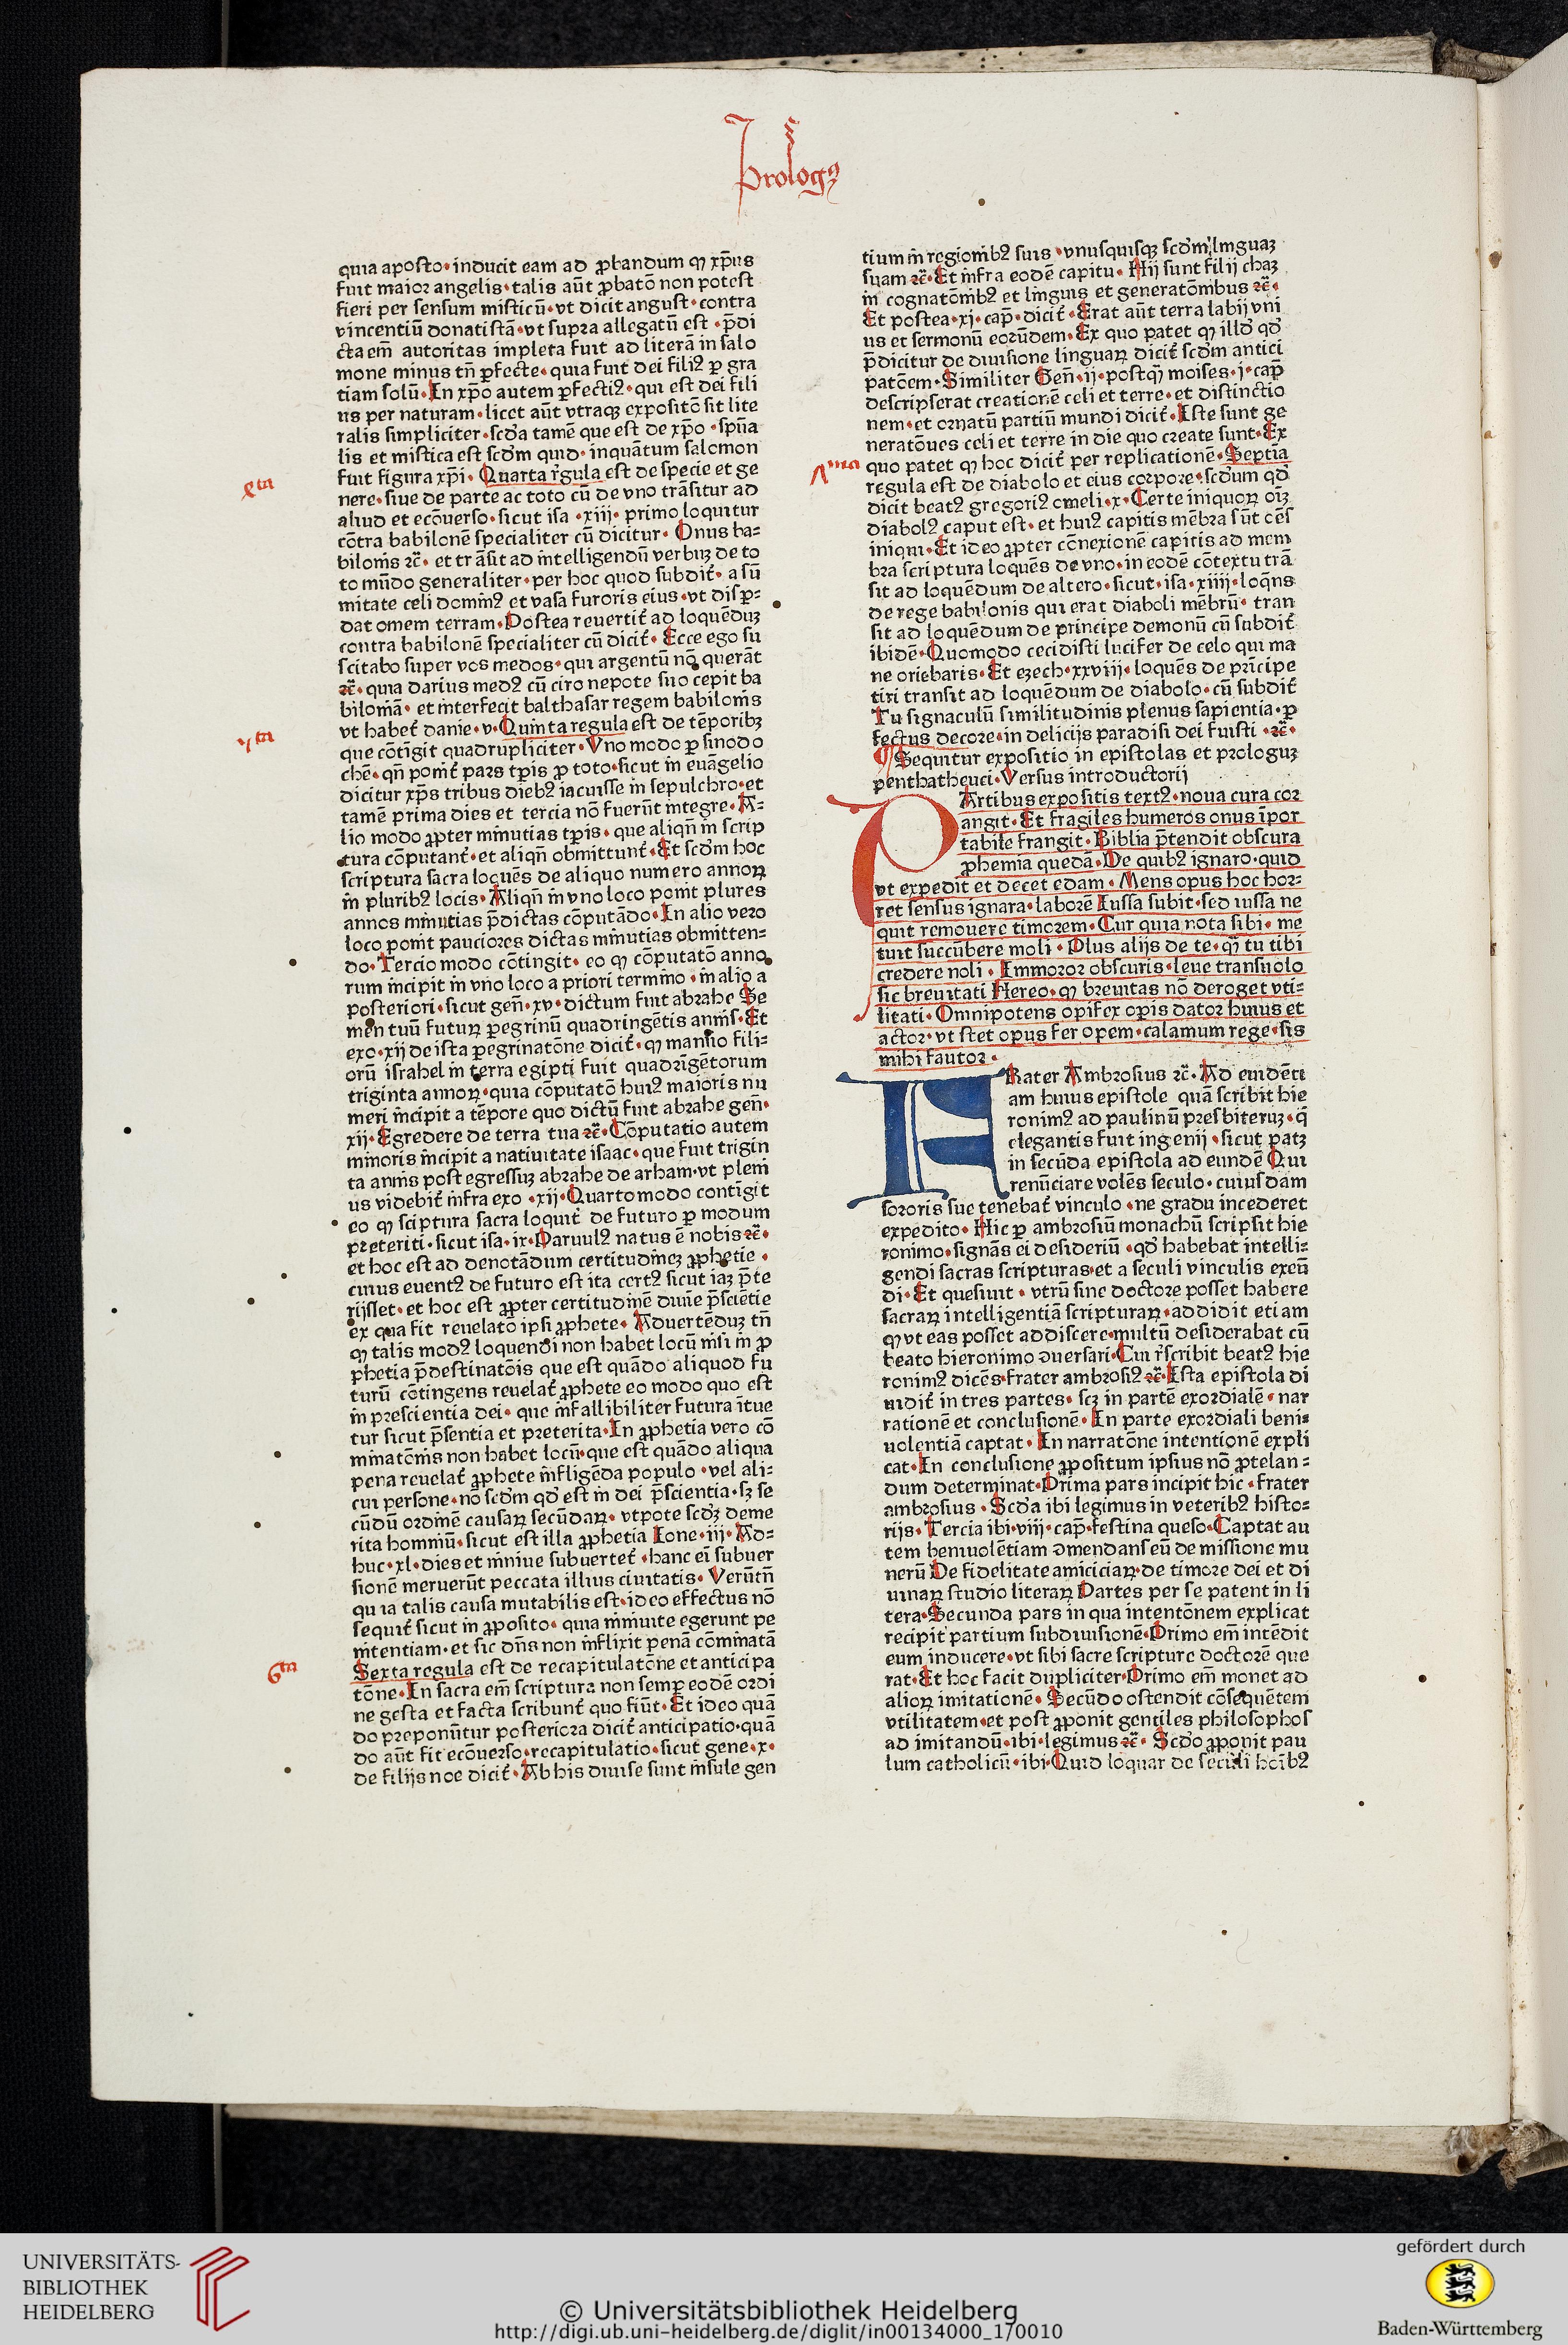 Prologꝰ
quia aposto·inducit eam ad ꝓbandum ꝙ xp̄us
fuit maior angelis·talis aūt ꝓbatō non potest
fieri per sensum misticū·vt dicit angust·contra
vincentiū donatistā·vt supra allegatū est·p̄di
cta em̄ autoritas impleta fuit ad literā in salo
mone minus tn̄ ꝑfecte·quia fuit dei filiꝰ ꝑ gra
tiam solū·In xp̄o autem ꝑfectiꝰ·qui est dei fili
us per naturam·licet aūt vtraqꝫ expositō sit lite
ralis simpliciter·scd̄a tamē que est de xp̄o·sp̄ua
lis et mistica est scd̄m quid·inquātum salomon
fuit figura xp̄i·Quarta r̄gula est de specie et ge
nere·siue de parte ac toto cū de vno trāsitur ad
aliud et ecōuerso·sicut isa·xiij·primo loquitur
cōtra babilonē specialiter cū dicitur·Onus ba=
bilonis ⁊c̄·et trāsit ad intelligendū verbuꝫ de to
to mūdo generaliter·per hoc quod subdit̄·a sū
mitate celi dominꝰ et vasa furoris eius·vt disꝑ=
dat omem terram·Postea reuertit̄ ad loquēduꝫ
contra babilonē specialiter cū dicit̄·Ecce ego su
scitabo super vos medos·qui argentū nō querāt
⁊c̄·quia darius medꝰ cū ciro nepote suo cepit ba
bilonīā·et interfecit balthasar regem babilonīs
vt habet̄ danie·v·Quinta regula est de tēporibꝫ
que cōtigit quadrupliciter·Vno modo ꝑ sinodo
chē·qn̄ ponit̄ pars tp̄is ꝓ toto·sicut in euāgelio
dicitur xp̄s tribus diebꝰ iacuisse in sepulchro·et
tamē prima dies et tercia nō fuerūt integre·A=
lio modo ꝓpter minutias tp̄is·que aliqn̄ in scrip
tura cōputant̄·et aliqn̄ obmittunt̄·Et scd̄m hoc
scriptura sacra loquēs de aliquo numero annoꝝ
in pluribꝰ locis·Aliqn̄ in vno loco ponit plures
annos minutias p̄dictas cōputādo·In alio vero
loco ponit pauciores dictas minutias obmitten=
do·Tercio modo cōtingit·eo ꝙ cōputatō anno
rum incipit in vno loco a priori termino·in alio a
posteriori·sicut gen̄·xv·dictum fuit abrahe Se
men tuū futuꝝ ꝑegrinū quadringētis annīs·Et
exo·xij de ista ꝑegrinatōne dicit̄·ꝙ mansio fili=
orū israhel in terra egipti fuit quadrīgētorum
triginta annoꝝ·quia cōputatō huiꝰ maioris nu
meri incipit a tēpore quo dictū fuit abrahe gen̄·
xij·Egredere de terra tua ⁊c̄·Cōputatio autem
minoris incipit a natiuitate isaac·que fuit trigin
ta annīs post egressuꝫ abrahe de arham·vt pleni
us videbit̄ infra exo·xij·Quarto modo contīgit
eo ꝙ sciptura sacra loquit̄ de futuro ꝑ modum
preteriti·sicut isa·ix·Paruulꝰ natus ē nobis ⁊c̄·
et hoc est ad denotādum certitudinēꝫ ꝓphetie·
cuius euentꝰ de futuro est ita certꝰ sicut iaꝫ p̄te
rijsset·et hoc est ꝓpter certitudinē diuīe p̄sciētie
ex qua fit reuelatō ipsi ꝓphete·Aduertēduꝫ tn̄
ꝙ talis modꝰ loquendi non habet locū nisi in ꝓ
phetia p̄destinatōis que est quādo aliquod fu
turū cōtingens reuelat̄ ꝓphete eo modo quo est
in prescientia dei·que infallibiliter futura itue
tur sicut p̄sentia et preterita·In ꝓphetia vero cō
minatōnīs non habet locū·que est quādo aliqua
pena reuelat̄ ꝓphete infligēda populo·vel ali=
cui persone·nō scd̄m qd̄ est in dei p̄scientia·sꝫ se
cūdū ordinē causaꝝ secūdaꝝ·vtpote scd̄ꝫ deme
rita hominū·sicut est illa ꝓphetia Ione·iij·Ad=
huc·xl·dies et niniue subuertet̄·hanc ei̇ subuer
sionē meruerūt peccata illius ciuitatis·Verūtn̄
quia talis causa mutabilis est·ideo effectus nō
sequit̄ sicut in ꝓposito·quia niniuite egerunt pe
nitentiam·et sic dn̄s non inflixit penā cōminatā
Sexta regula est de recapitulatōne et anticipa
tōne·In sacra em̄ scriptura non semꝑ eodē ordi
ne gesta et facta scribunt̄ quo fiūt·Et ideo quā
do preponūtur posteriora dicit̄ anticipatio·quā
do aūt fit ecōuerso·recapitulatio·sicut gene·x·
de filijs noe dicit̄·Ab his diuise sunt insule gen
vta
6ta
tium in regionibꝰ suis·vnusquisqꝫ scd̄m lingnaꝫ
suam ⁊c̄·Et infra eodē capitu·Hij sunt filij chaꝫ
in cognatōnibꝰ et linguis et generatōnibus ⁊c̄·
Et postea·xj·cap̄·dicit̄·Erat aūt terra labij vni
us et sermonū eorūdem·Ex quo patet ꝙ illd̄ qd̄
p̄dicitur de diuisione linguaꝝ dicit̄ scd̄m antici
patōem·Similiter Gen̄·ij·postqȝ moises·j·cap̄
descripserat creationē celi et terre·et distinctio
nem·et ornatū partiū mundi dicit̄·Iste sunt ge
neratōues celi et terre in die quo create sunt·Ex
quo patet ꝙ hoc dicit̄ per replicationē·Septīa
regula est de diabolo et eius corpore·scd̄um qd̄
dicit beatꝰ gregoriꝰ omeli·x·Certe iniquoꝝ oīꝫ
diabolꝰ caput est·et huiꝰ capitis mēbra sūt oēs
iniqui·Et ideo ꝓpter cōnexionē capitis ad mem
bra scriptura loquēs de vno·in eodē cōtextu trā
sit ad loquēdum de altero·sicut·isa·xiiij·loqn̄s
de rege babilonis qui erat diaboli mēbrū·tran
sit ad loquēdum de principe demonū cū subdit̄
ibidē·Quomodo cecidisti lucifer de celo qui ma
ne oriebaris·Et ezech·xxviij·loquēs de prīcipe
tiri transit ad loquēdum de diabolo·cū subdit̄
Tu signaculū similitudinis plenus sapientia·ꝑ
fectus decore·in delicijs paradisi dei fuisti·⁊c̄·
¶Sequitur expositio in epistolas et prologuꝫ
penthatheuci·Versus introductorij
PArtibus expositis textꝰ·noua cura cor
angit·Et fragiles humeros onus īpor
tabile frangit·Biblia p̄tendit obscura
ꝓhemia quedā·De quibꝰ ignaro·quid
vt expedit et decet edam·Mens opus hoc hor=
ret sensus ignara·laborē Iussa subit·sed iussa ne
quit remouere timorem·Cur quia nota sibi·me
tuit succūbere moli·Plus alijs de te·qȝ tu tibi
credere noli·Immoror obscuris·leue transuolo
sic breuitati Hereo·ꝙ breuitas nō deroget vti=
litati·Omnipotens opifex oꝑis dator huius et
actor·vt stet opus fer opem·calamum rege·sis
mihi fautor·
FRater Ambrosius ⁊c̄·Ad euidēti
am huius epistole quā scribit hie
ronimꝰ ad paulinū presbiteruꝫ·q̄
elegantis fuit ingenij·sicut patꝫ
in secūda epistola ad eundē Qui
renūciare volēs seculo·cuiusdam
sororis sue tenebat̄ vinculo·ne gradu incederet
expedito·Hic ꝑ ambrosiū monachū scripsit hie
ronimo·signās ei desideriū·qd̄ habebat intelli=
gendi sacras scripturas·et a seculi vinculis exeū
di·Et quesiuit·vtrū sine doctore posset habere
sacraꝝ intelligentiā scripturaꝝ·addidit etiam
ꝙ vt eas posset addiscere·multū desiderabat cū
beato hieronimo ↄuersari·Cui r̄scribit beatꝰ hie
ronimꝰ dicēs·frater ambrosiꝰ ⁊c̄·Ista epistola di
uidit̄ in tres partes·scꝫ in partē exordialē·nar
rationē et conclusionē·In parte exordiali beni=
uolentiā captat·In narratōne intentionē expli
cat·In conclusione ꝓpositum ipsius nō ꝓtelan=
dum determinat·Prima pars incipit hic·frater
ambrosius·Scd̄a ibi legimus in veteribꝰ histo=
rijs·Tercia ibi·viij·cap̄·festina queso·Captat au
tem beniuolētiam ↄmendans eū de missione mu
nerū De fidelitate amiciciaꝝ·de timore dei et di
uinaꝝ studio literaꝝ Partes per se patent in li
tera·Secunda pars in qua intentōnem explicat
recipit partium subdiuisionē·Primo em̄ intēdit
eum inducere·vt sibi sacre scripture doctorē que
rat·Et hoc facit dupliciter·Primo em̄ monet ad
alioꝝ imitationē·Secūdo ostendit cōsequētem
vtilitatem·et post ꝓponit gentiles philosophos
ad imitandū·ibi·legimus ⁊c̄·Scd̄o ꝓponit pau
lum catholicū·ibi·Quid loquar de seculi hoībꝰ
UNIVERSITÄTS-
BIBLIOTHEK
HEIDELBERG
© Universitätsbibliothek Heidelberg
http://digi.ub.uni-heidelberg.de/diglit/in00134000_170010
gefördert durch
Baden-Württemberg